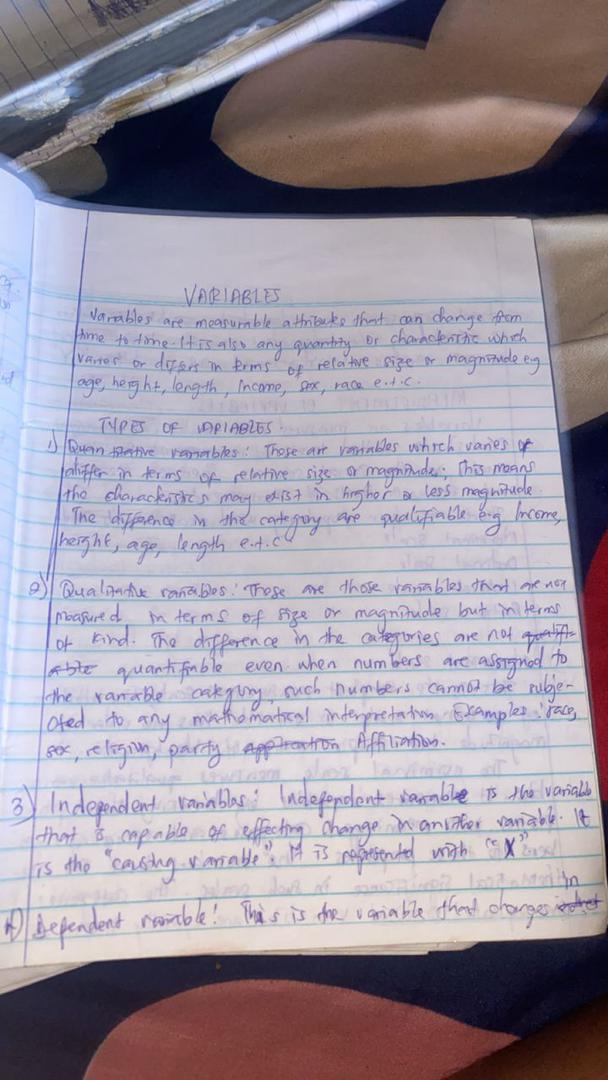 VARIABLES
Variables are measurable attributes that can change from
time to time. It is also any quantity or characteristic which
varies or differs in terms of relative size or magnitude e.g
age, height, length, Income, sex, race e.t.c.
TYPES OF VARIABLES.
1) Quantitative variables: These are variables which varies or
differ in terms of relative size or magnitude; This means
the characteristics may exist in higher or less magnitude.
The difference in the category are qualifiable e.g Income,
height, age, length e.t.c
2) Qualitative variables: These are those variables that are not
measured in terms of size or magnitude but in terms
of kind. The difference in the categories are not
quantifiable even when numbers are assigned to
the variable category, such numbers cannot be subje-
cted to any mathematical interpretation. Examples: race,
sex, religion, party Affiliation.
3) Independent variables: Independent variable is the variable
that is capable of effecting change in another variable. It
is the "causing variable". It is represented with "X"
4) Dependent variable: This is the variable that changes in